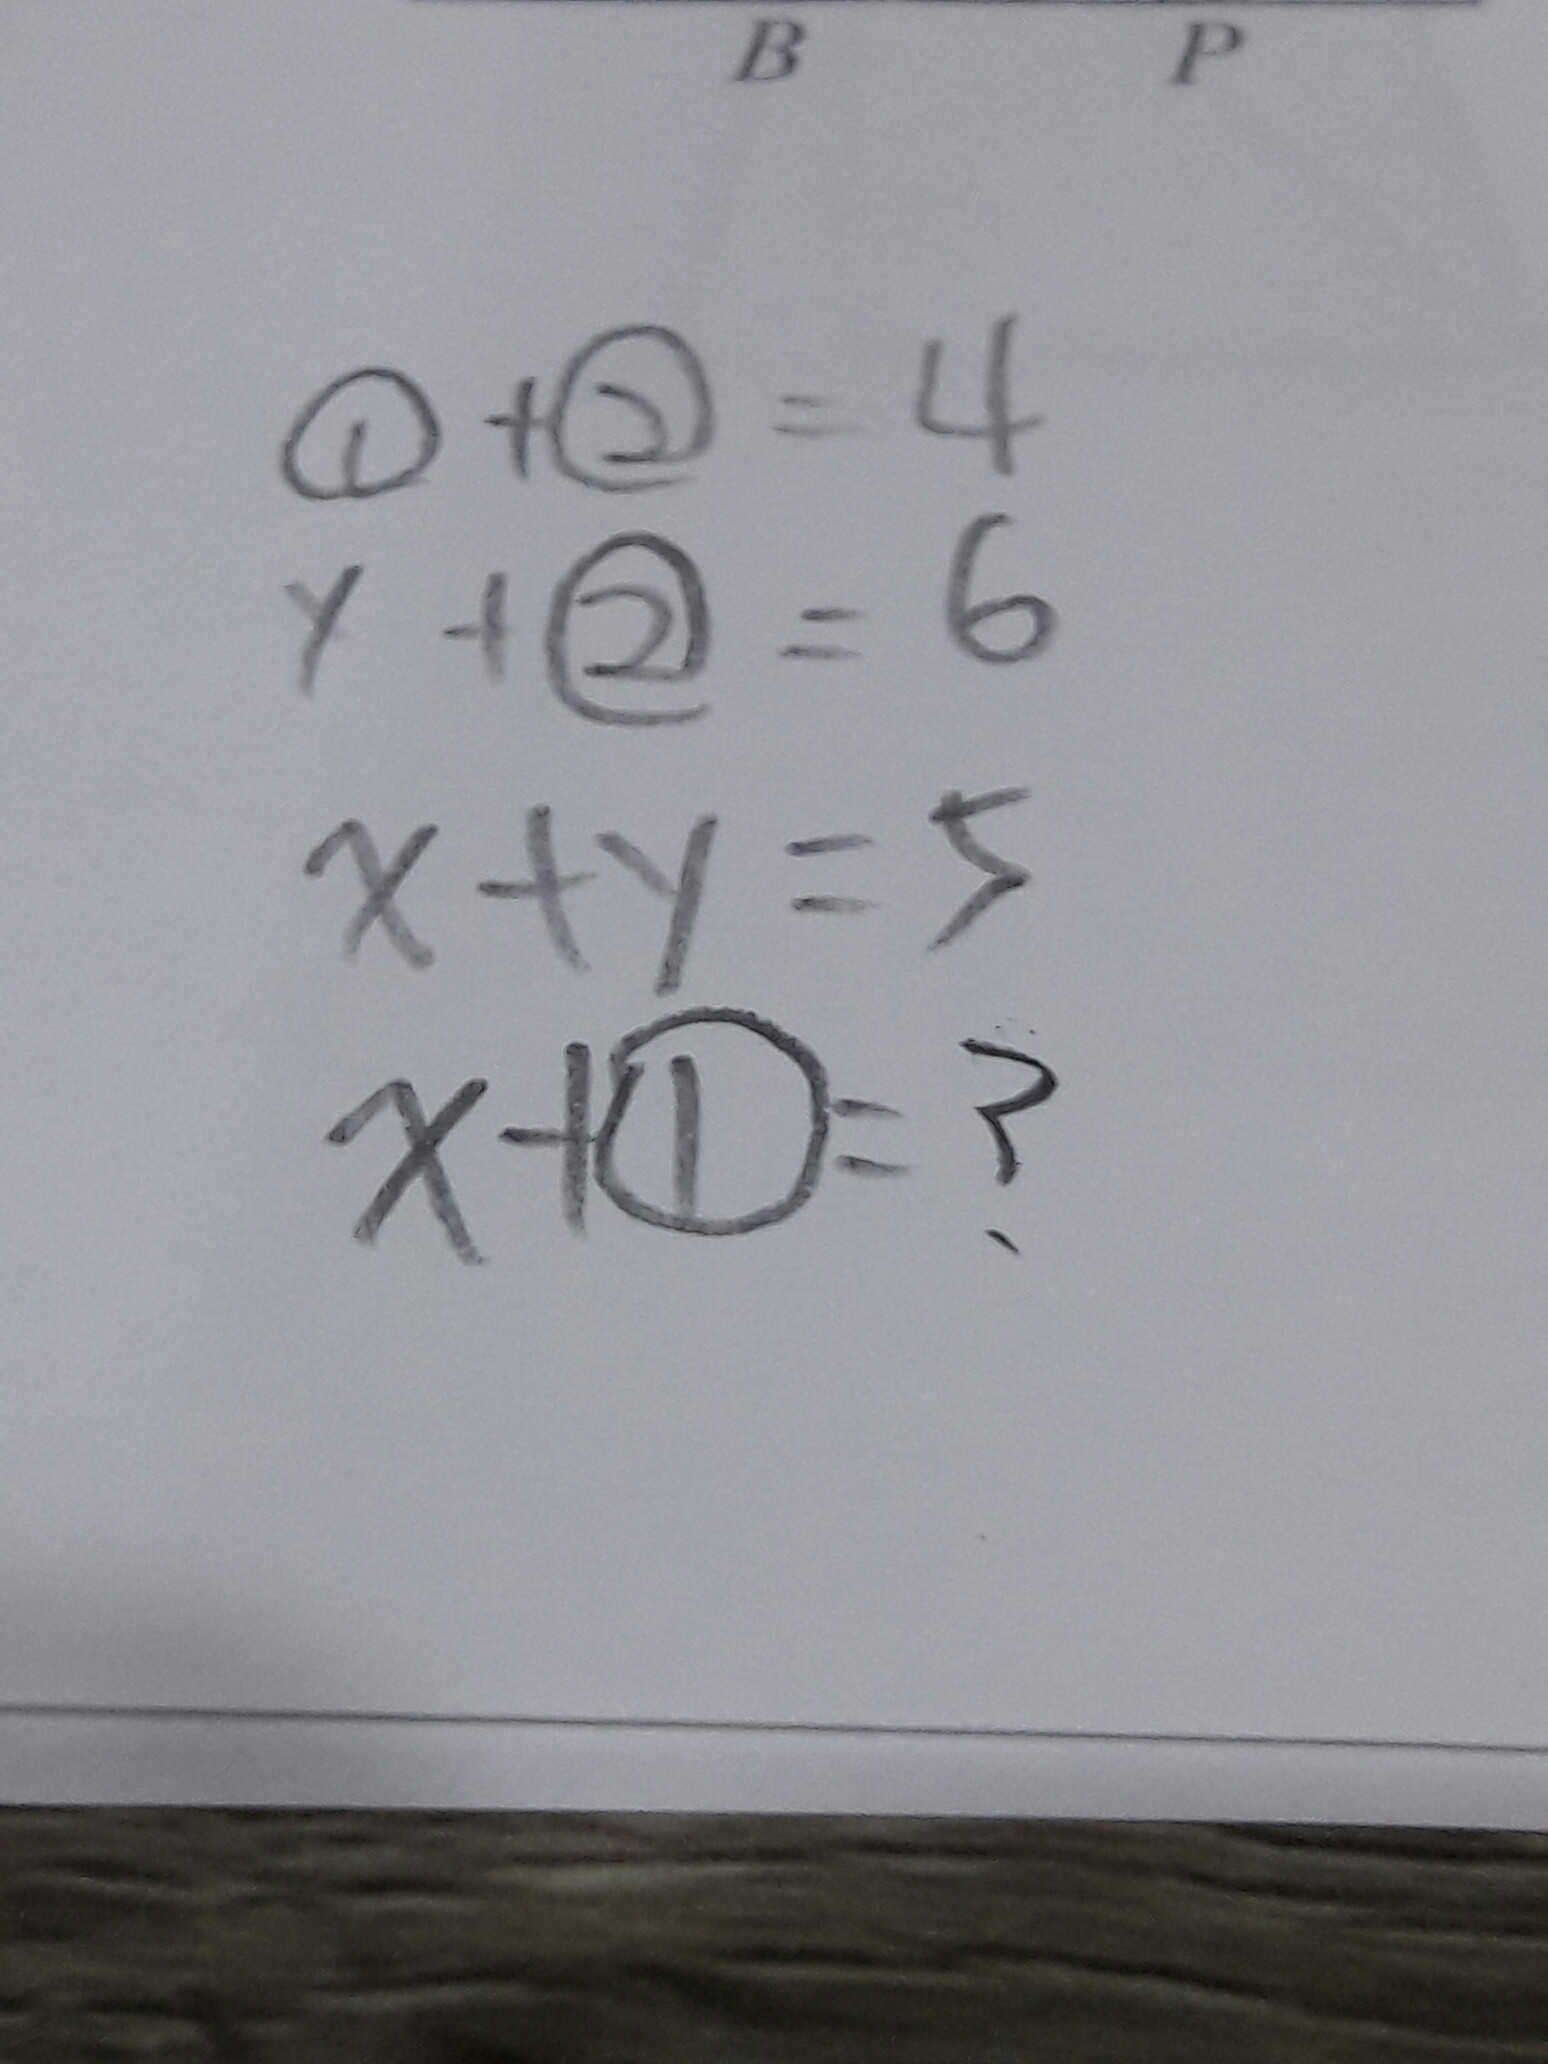 B P
① + ② = 4
y + ② = 6
x + y = 5
x + ① = ?